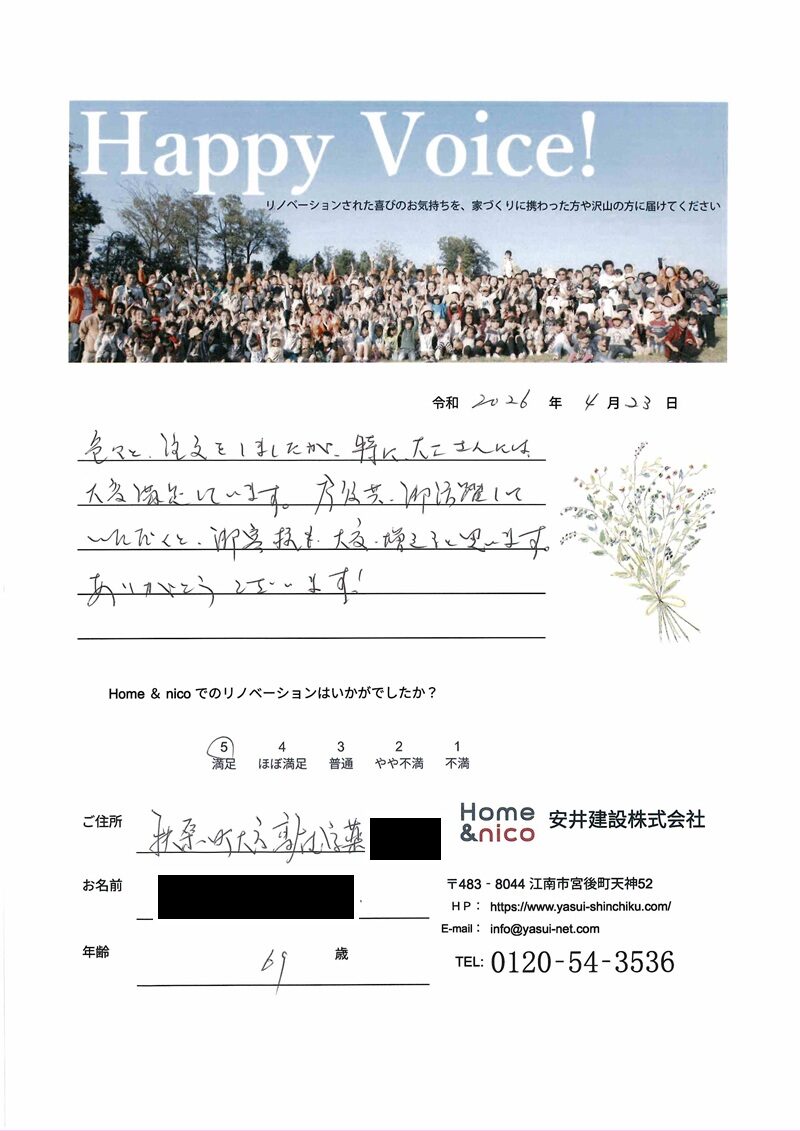 Happy Voice!
リノベーションされた喜びのお気持ちを、家づくりに携わった方や沢山の方に届けてください
令和 2026 年 4 月 23 日
色々と、注文をしましたが、特に、大工さんには、
大変満足しています。今後共、御活躍して
いただくと、御客様も、大変、増えると思います。
ありがとうございます!
Home & nico でのリノベーションはいかがでしたか？
5 4 3 2 1
満足 ほぼ満足 普通 やや不満 不満
ご住所 扶桑町大字高雄字薬
Home &nico 安井建設株式会社
お名前
〒483‐8044 江南市宮後町天神52
HP： https://www.yasui-shinchiku.com/
E-mail： info@yasui-net.com
年齢 69 歳
TEL: 0120-54-3536